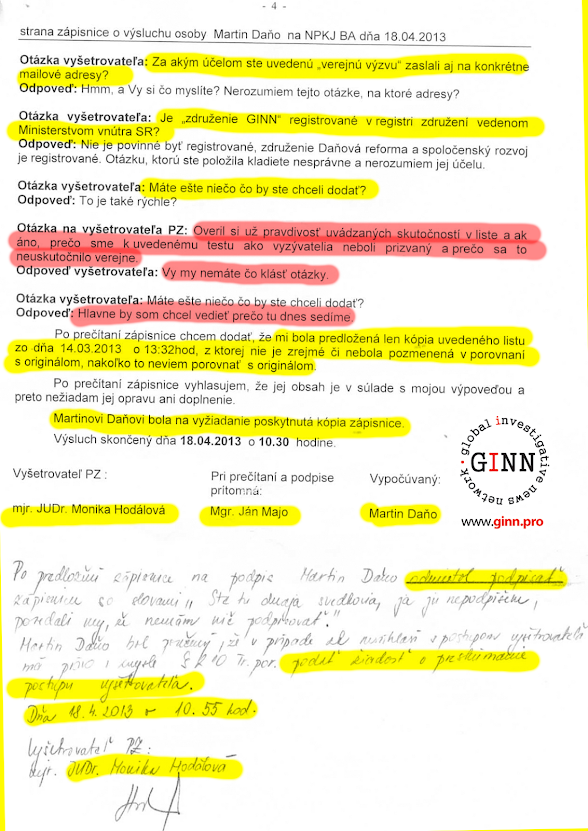 - 4 -
strana zápisnice o výsluchu osoby Martin Daňo na NPKJ BA dňa 18.04.2013
Otázka vyšetrovateľa: Za akým účelom ste uvedenú „verejnú výzvu" zaslali aj na konkrétne
mailové adresy?
Odpoveď: Hmm, a Vy si čo myslíte? Nerozumiem tejto otázke, na ktoré adresy?
Otázka vyšetrovateľa: Je „združenie GINN" registrované v registri združení vedenom
Ministerstvom vnútra SR?
Odpoveď: Nie je povinné byť registrované, združenie Daňová reforma a spoločenský rozvoj
je registrované. Otázku, ktorú ste položila kladiete nesprávne a nerozumiem jej účelu.
Otázka vyšetrovateľa: Máte ešte niečo čo by ste chceli dodať?
Odpoveď: To je také rýchle?
Otázka na vyšetrovateľa PZ: Overil si už pravdivosť uvádzaných skutočností v liste a ak
áno, prečo sme k uvedenému testu ako vyzývatelia neboli prizvaný a prečo sa to
neuskutočnilo verejne.
Odpoveď vyšetrovateľa: Vy my nemáte čo klásť otázky.
Otázka vyšetrovateľa: Máte ešte niečo čo by ste chceli dodať?
Odpoveď: Hlavne by som chcel vedieť prečo tu dnes sedíme.
Po prečítaní zápisnice chcem dodať, že mi bola predložená len kópia uvedeného listu
zo dňa 14.03.2013 o 13:32hod, z ktorej nie je zrejmé či nebola pozmenená v porovnaní
s originálom, nakoľko to neviem porovnať s originálom.
Po prečítaní zápisnice vyhlasujem, že jej obsah je v súlade s mojou výpoveďou a
preto nežiadam jej opravu ani doplnenie.
Martinovi Daňovi bola na vyžiadanie poskytnutá kópia zápisnice.
Výsluch skončený dňa 18.04.2013 o 10.30 hodine.
global investigative news network
GINN
www.ginn.pro
Vyšetrovateľ PZ : Pri prečítaní a podpise Vypočúvaný:
prítomná:
mjr. JUDr. Monika Hodálová Mgr. Ján Majo Martin Daňo
Po predložení zápisnice na podpis Martin Daňo odmietol podpísať
zápisnicu so slovami „ Ste tu dvaja svedkovia, ja ju nepodpíšem,
povedali my, že nemám nič podpisovať."
Martin Daňo bol poučený, že v prípade ak nesúhlasí s postupom vyšetrovateľa
má právo v zmysle § 210 Tr. por. podať žiadosť o preskúmanie
postupu vyšetrovateľa.
Dňa 18.4.2013 o 10.55 hod.
Vyšetrovateľ PZ :
mjr. JUDr. Monika Hodálová